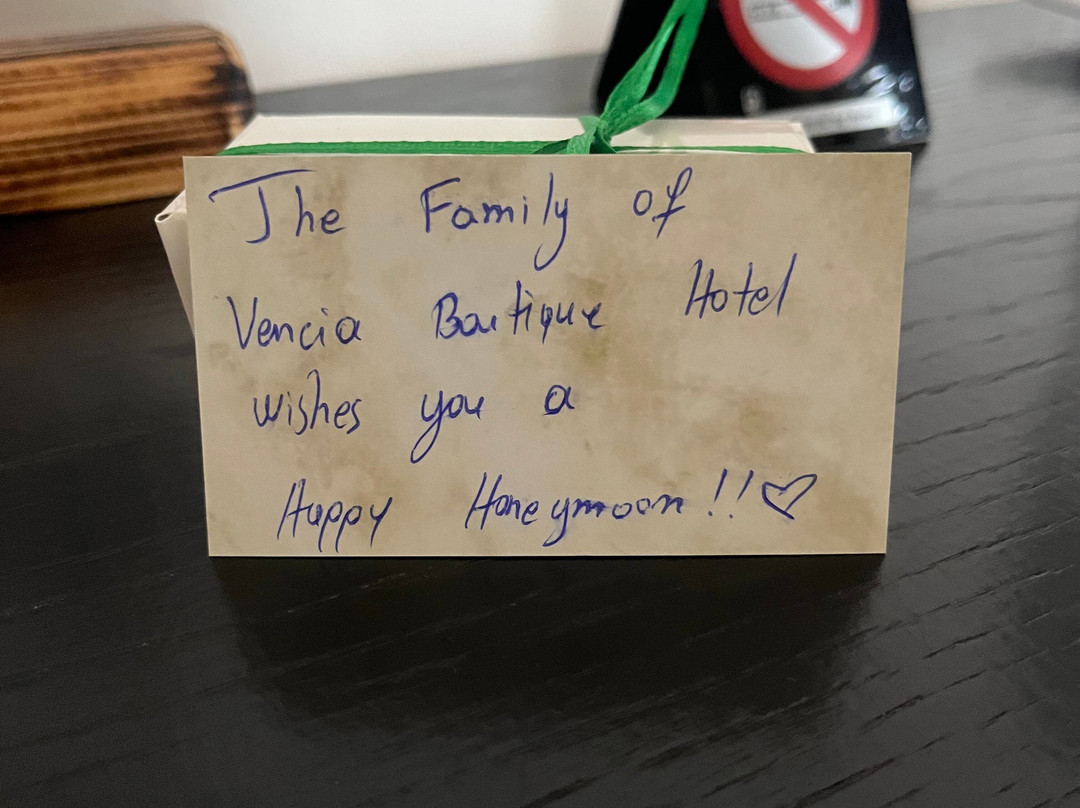 The Family of
Vencia Boutique Hotel
wishes you a
Happy Honeymoon!!♡